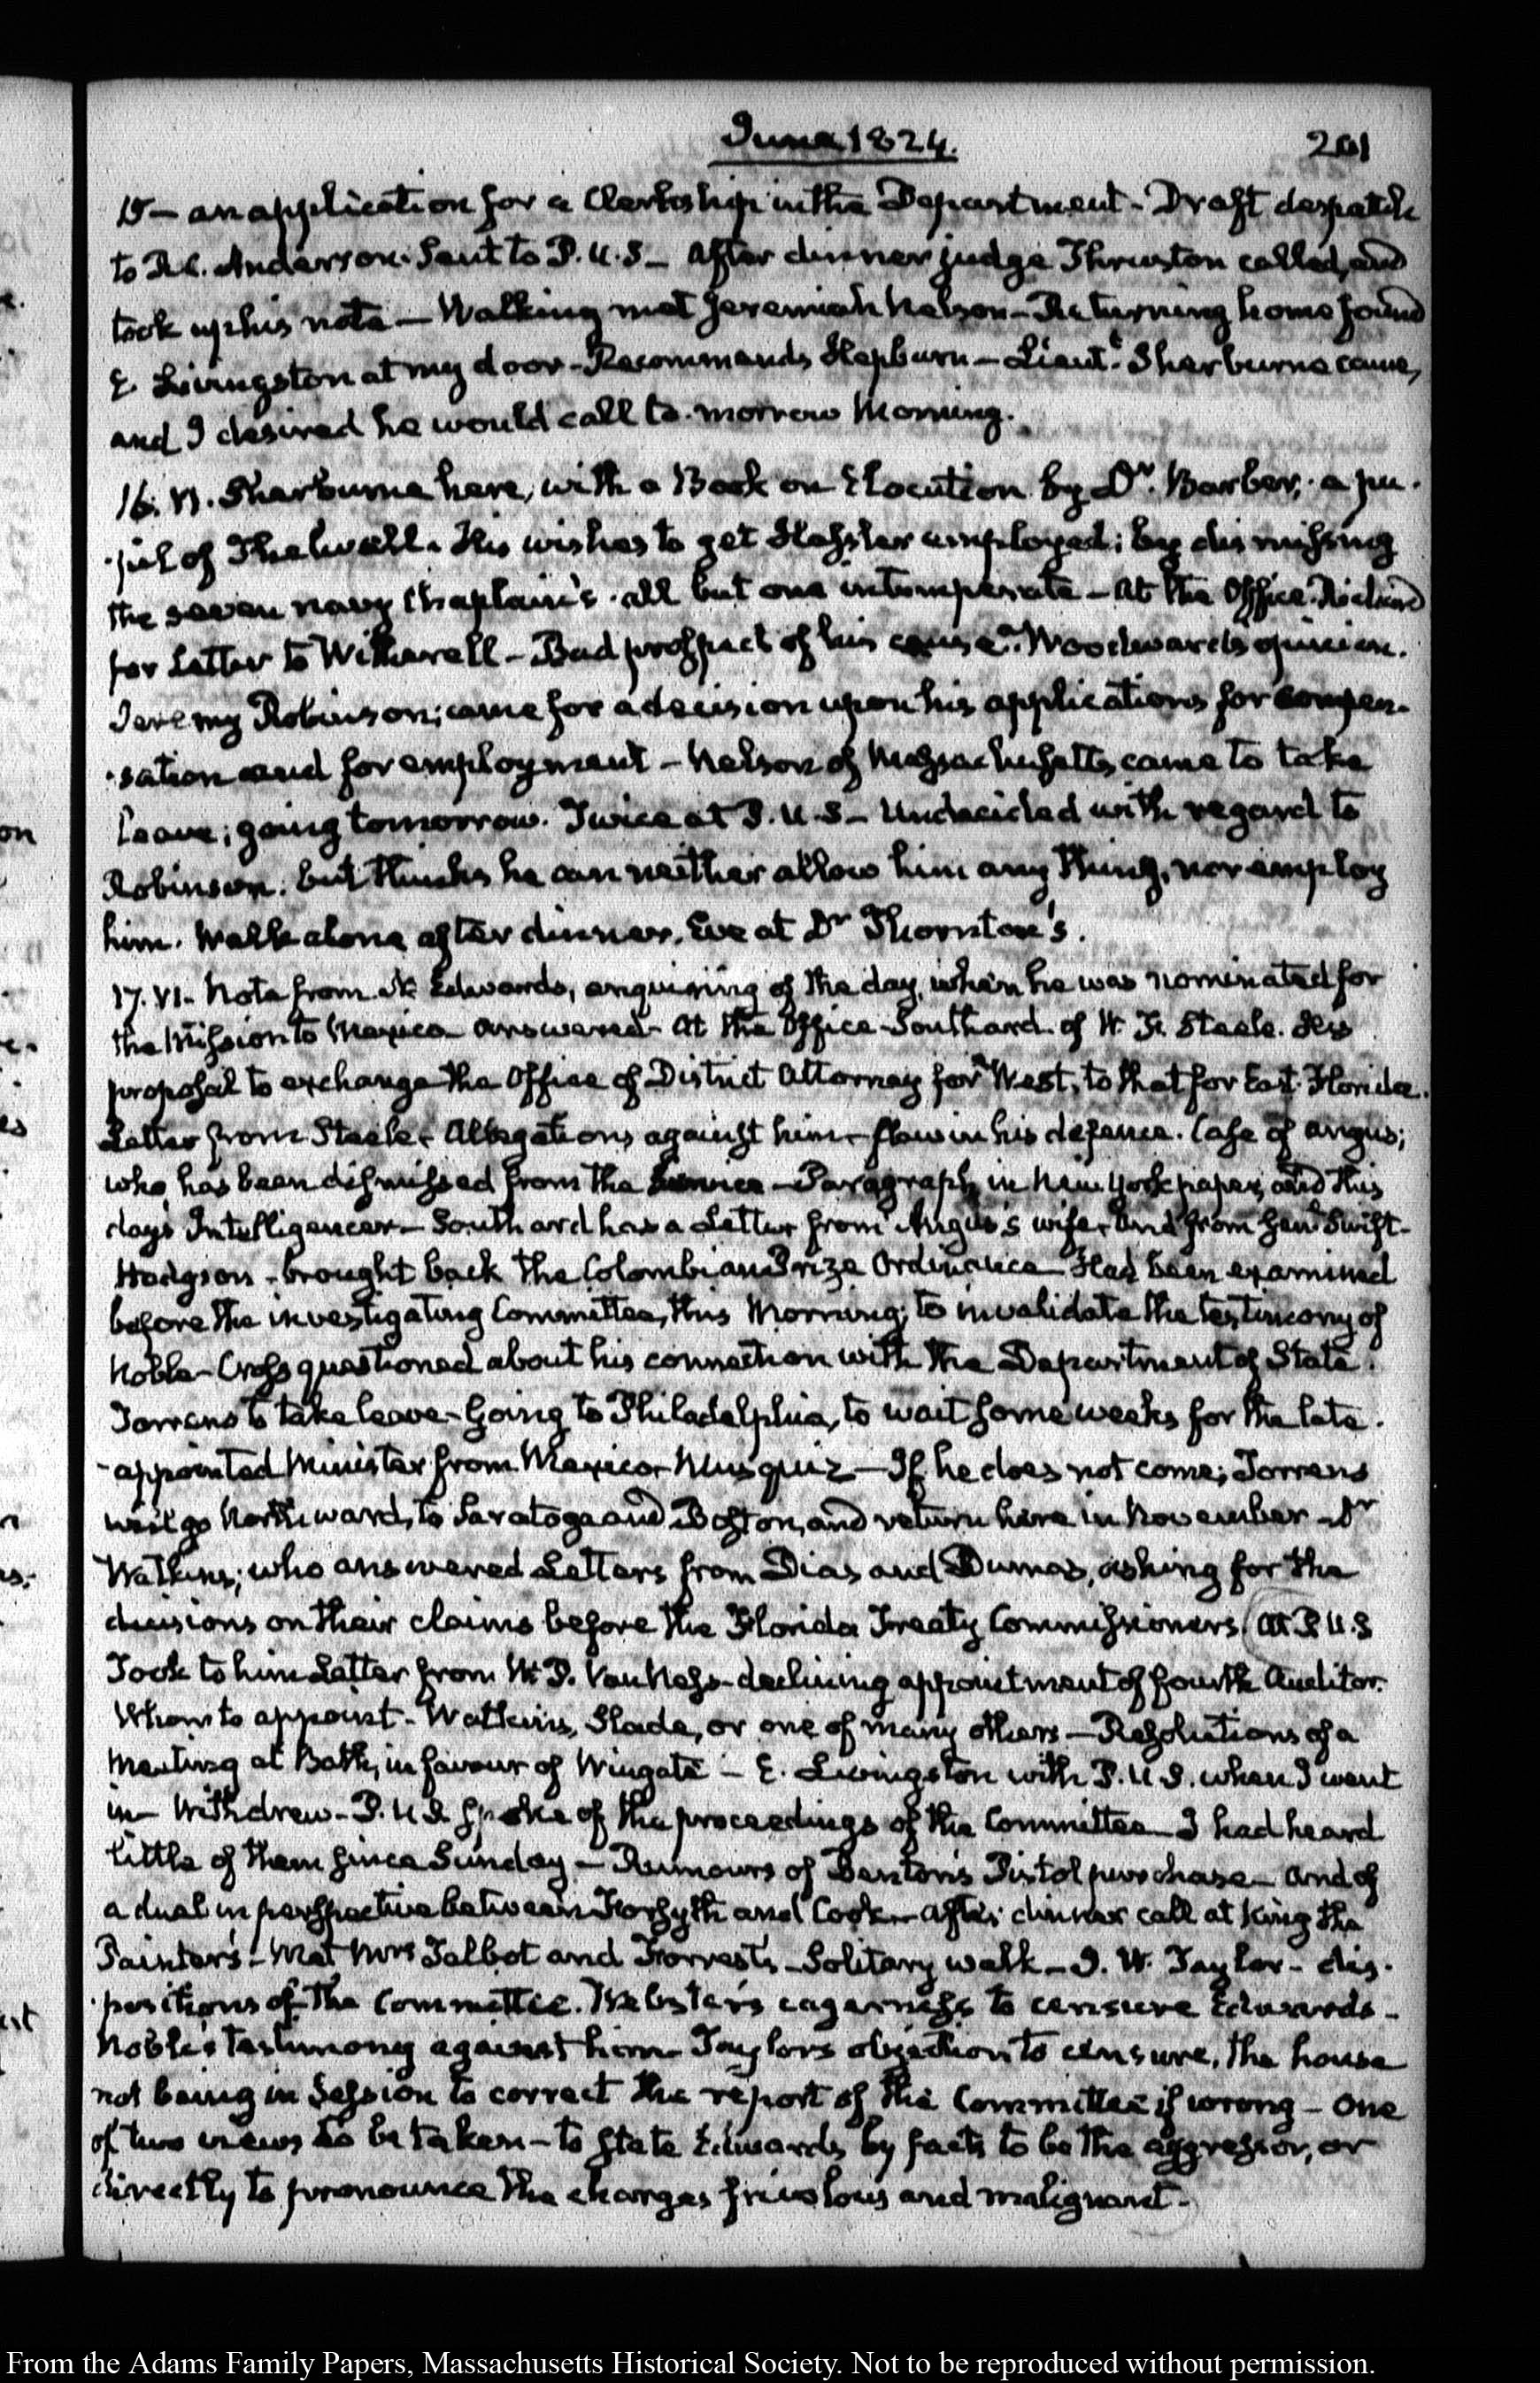 June 1824.
201
15 — an application for a Clerkship in the Department - Draft despatch
to R.C. Anderson. Sent to P.U.S — After dinner judge Thruston called, and
took up his note — Walking met Jeremiah Nelson — Returning home found
E. Livingston at my door - Recommends Hepburn — Lieutt. Sherburne came,
and I desired he would call to-morrow Morning.
16. VI. Sherburne here, with a Book on Elocution by Dr. Barber; a pu-
-pil of Thelwall. His wishes to get Hassler employed; by dismissing
the seven navy Chaplain's. all but one intemperate — At the Office. Richard
for Letter to Witherell — Bad prospect of his cause. Woodward's opinion.
Jeremy Robinson; came for a decision upon his applications for compen-
-sation and for employment — Nelson of Massachusetts came to take
leave; going tomorrow. Twice at P.U.S — Undecided with regard to
Robinson. but thinks he can neither allow him any thing, nor employ
him. Walk alone after dinner. Eve at Dr Thornton's.
17. VI. Note from N. Edwards, enquiring of the day, when he was nominated for
the Mission to Mexico — answered — At the Office — Southard. of W. F. Steele. His
proposal to exchange the Office of District Attorney for West, to that for East Florida.
Letter from Steele — Allegations against him — flaw in his defence. Case of Angus;
who has been dismissed from the Service — Paragraph in New York paper, and this
day's Intelligencer — Southard has a Letter from Angus's wife, and from Genl. Swift —
Hodgson — brought back the Colombian Prize Ordinance — Has been examined
before the investigating Committee, this Morning; to invalidate the testimony of
Noble — Cross questioned about his connection with the Department of State.
Torrens to take leave — Going to Philadelphia, to wait some weeks for the late-
-appointed Minister from Mexico — Musquiz — If he does not come; Torrens
will go Northward, to Saratoga and Boston, and return here in November — Dr
Watkins; who answered Letters from Dias and Dumas, asking for the
decisions on their claims before the Florida Treaty Commissioners. At P.U.S
Took to him Letter from W. P. Van Ness — declining appointment of fourth Auditor.
Whom to appoint — Watkins, Slade, or one of many others — Resolutions of a
Meeting at Bath, in favour of Wingate — E. Livingston with P.U.S. when I went
in — Withdrew — P.U.S. spoke of the proceedings of the Committee — I had heard
little of them since Sunday — Rumours of Benton's Pistol purchase — and of
a duel in perspective between Forsyth and Cook — After dinner call at King the
Painter's — Met Mrs Talbot and Forrest, — Solitary walk — J. W. Taylor — dis-
-positions of the Committee. Webster's eagerness to censure Edwards —
Noble's testimony against him — Taylor's objection to censure, the house
not being in Session to correct the report of the Committee if wrong — One
of two views to be taken — to state Edwards by facts to be the aggressor, or
directly to pronounce the charges frivolous and malignant —
From the Adams Family Papers, Massachusetts Historical Society. Not to be reproduced without permission.